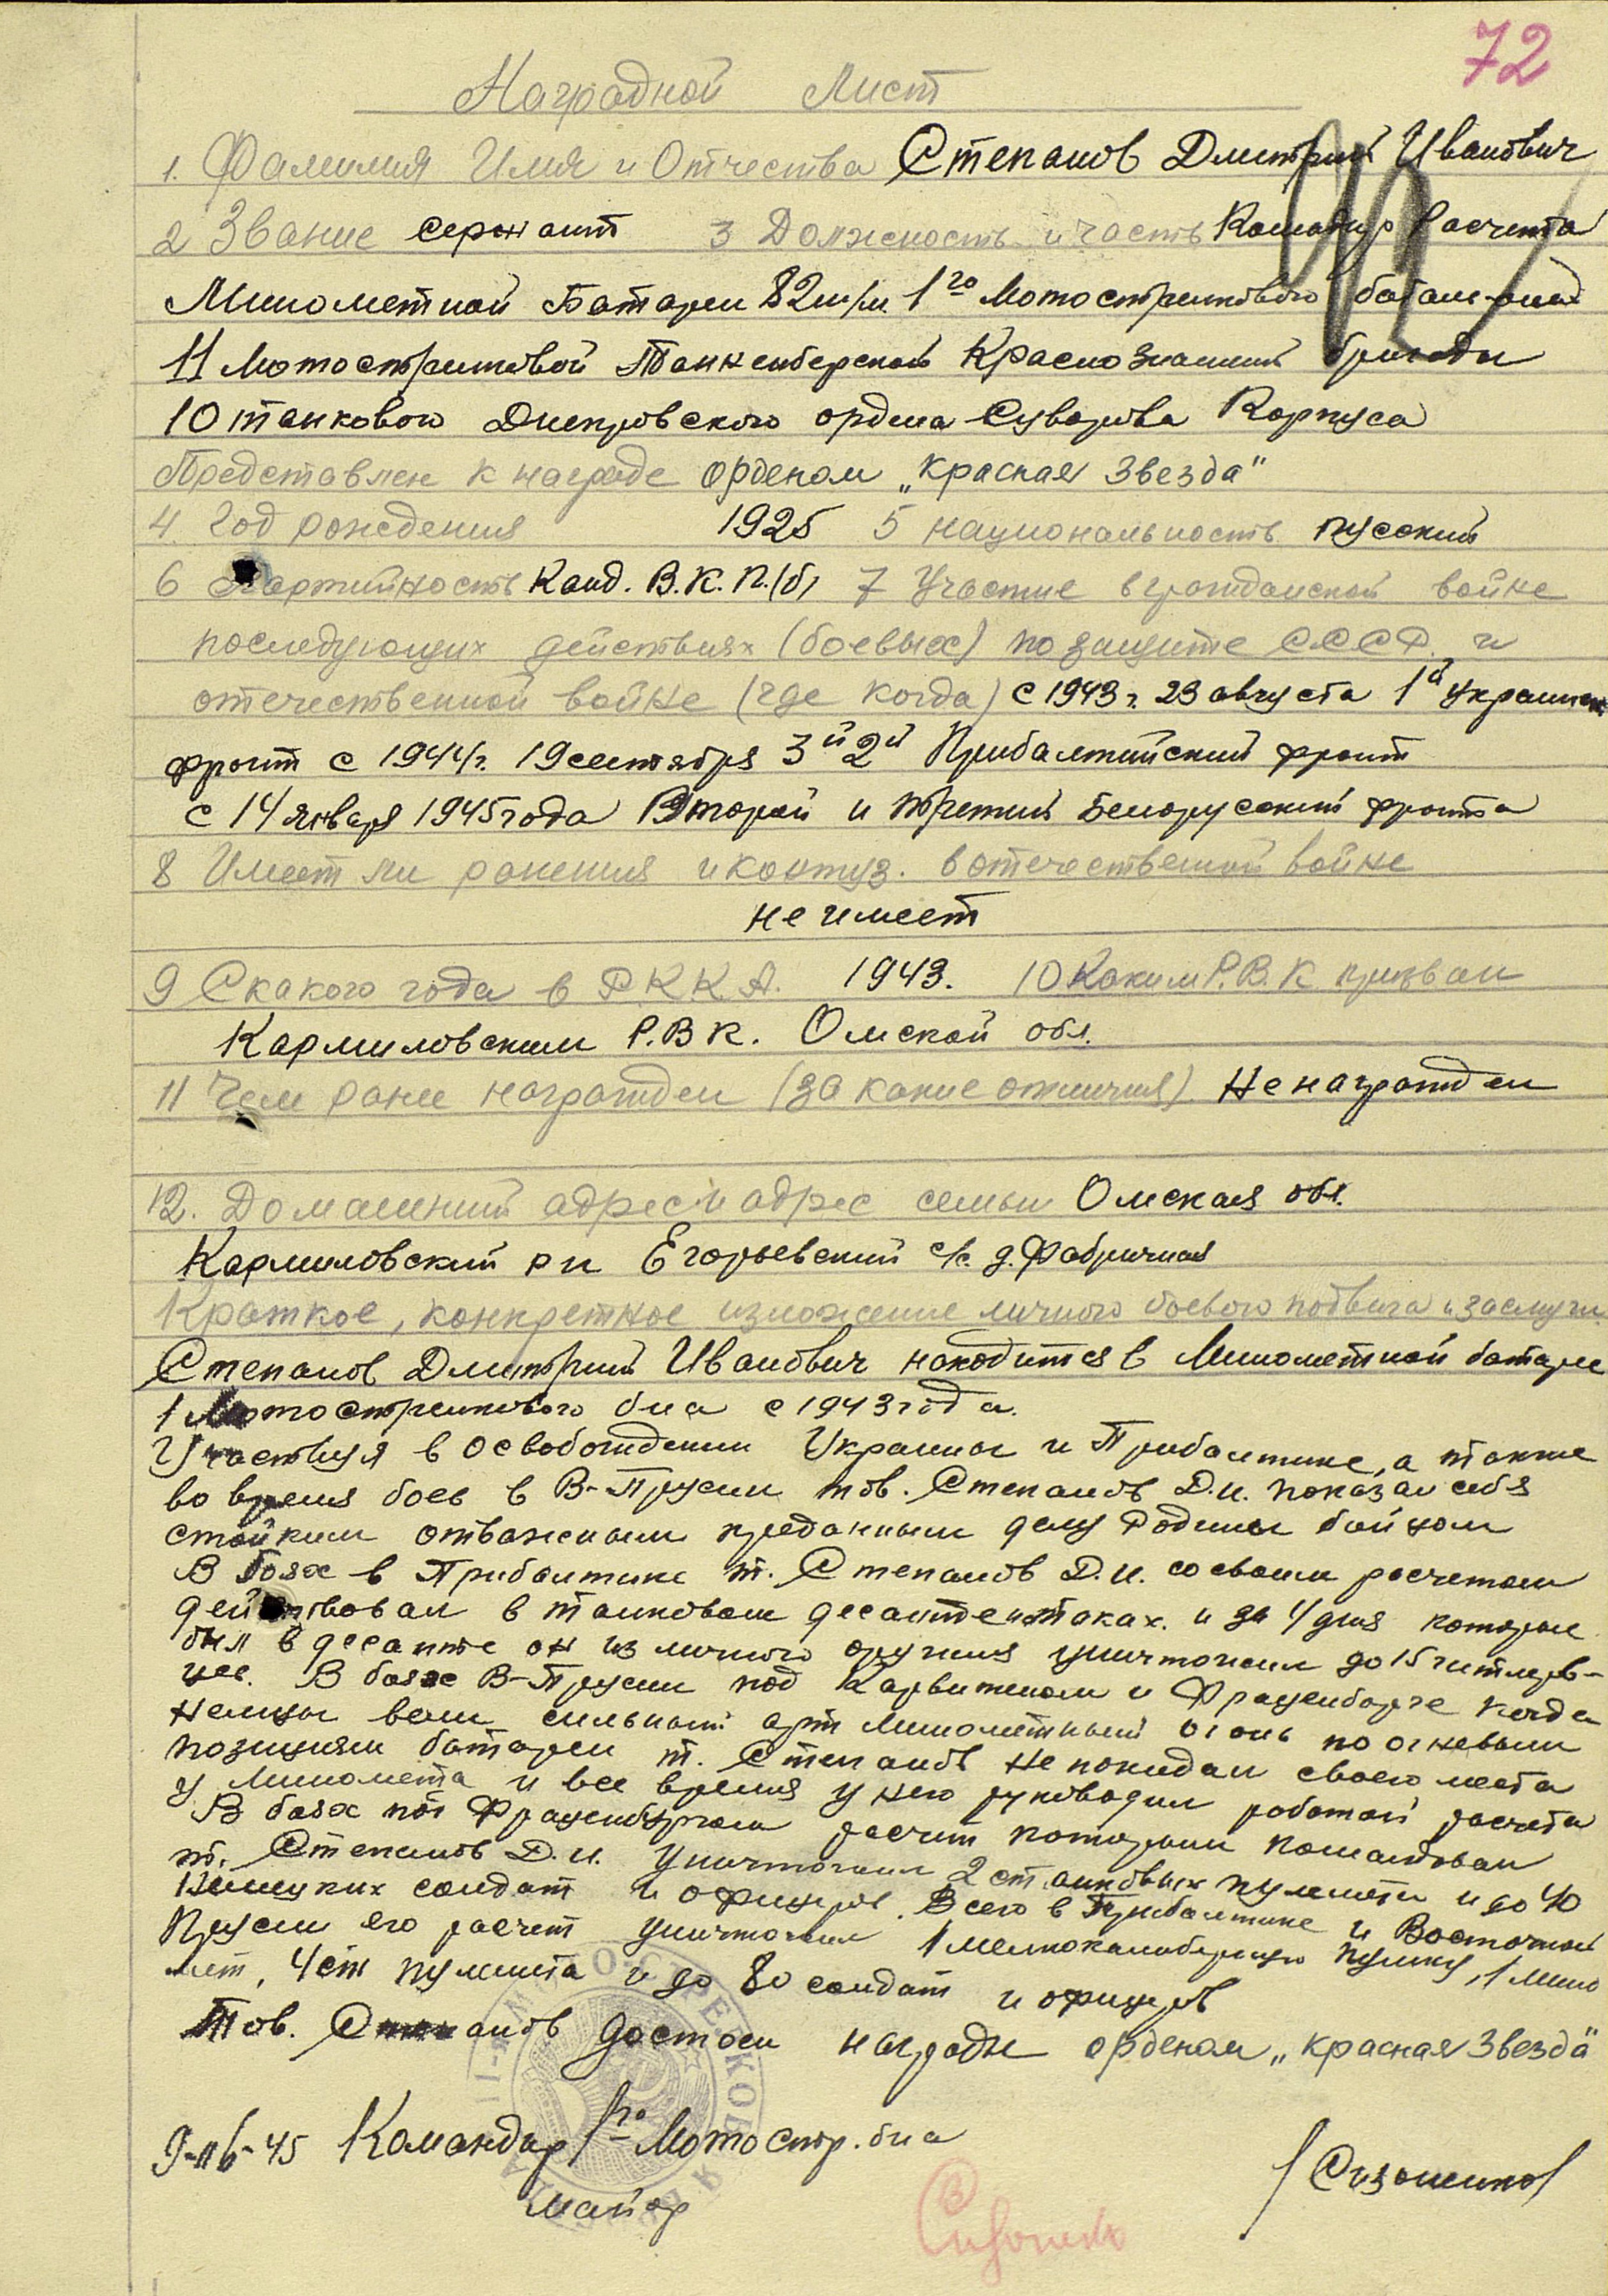 72
Наградной Лист
1. Фамилия Имя и Отчества Степанов Дмитрий Иванович
2 Звание сержант 3 Должность и часть Командир Расчета
Минометной Батареи 82 м/м. 1го Мотострелкового батальона
11 Мотострелковой Танненбергской Краснознамений бригады
10 танкового Днепровского ордена Суворова Корпуса
Представлен к награде орденом „Красная Звезда"
4. Год рождения 1925 5 национальность русский
6 Партийность Канд. В.К.П.(б) 7 Участие в гражданской войне
последующих действиях (боевых) по защите СССР. и
отечественной войне (где когда) с 1943 г. 23 августа 1й Украинск
фронт с 1944 г. 19 сентября 3й 2й Прибалтийский фронт
с 14 января 1945 года Второй и третий Белорусский фронта
8 Имеет ли ранения и контуз. в отечественной войне
не имеет
9 С какого года в Р.К.К.А. 1943. 10 Каким Р.В.К призван
Кармиловским Р.В.К. Омской обл.
11 Чем ранее награжден (за какие отличия) Не награжден
12. Домашний адрес и адрес семьи Омская обл.
Кармиловский р-н Егорьевский с/с. д. Фабричная
Краткое, конкретное изложение личного боевого подвига и заслуги
Степанов Дмитрий Иванович находится в Минометной батарее
1 Мотострелкового б-на с 1943 года.
Участвуя в освобождении Украины и Прибалтике, а также
во время боев в В-Прусии тов. Степанов Д.И. показал себя
стойким отважным преданным делу Родины бойцом
В боях в Прибалтике т. Степанов Д.И. со своим расчетом
действовал в танковом десанте в атаках. и за 4 дня которые
был в десанте он из личного оружия уничтожил до 15 гитлеров-
цев. В боях В-Прусии под Карвитеном и Фрауенбурге когда
Немцы вели сильный арт минометный огонь по огневым
позициям батареи т. Степанов не покидал своего места
у миномета и все время у него руководил работой расчета
В боях под Фрауенбургом расчет которым командовал
т. Степанов Д.И. уничтожил 2 станковых пулемета и до 40
Немецких солдат и офицеров. Всего в Прибалтике и Восточной
Прусии его расчет уничтожил 1 мелкокалиберную пушку, 1 мино
мет, 4 ст пулемета и до 80 солдат и офицеров
Тов. Степанов достоен награды орденом „Красная Звезда"
Командир 1го Мотостр. б-на
майор
/Сизоненко/